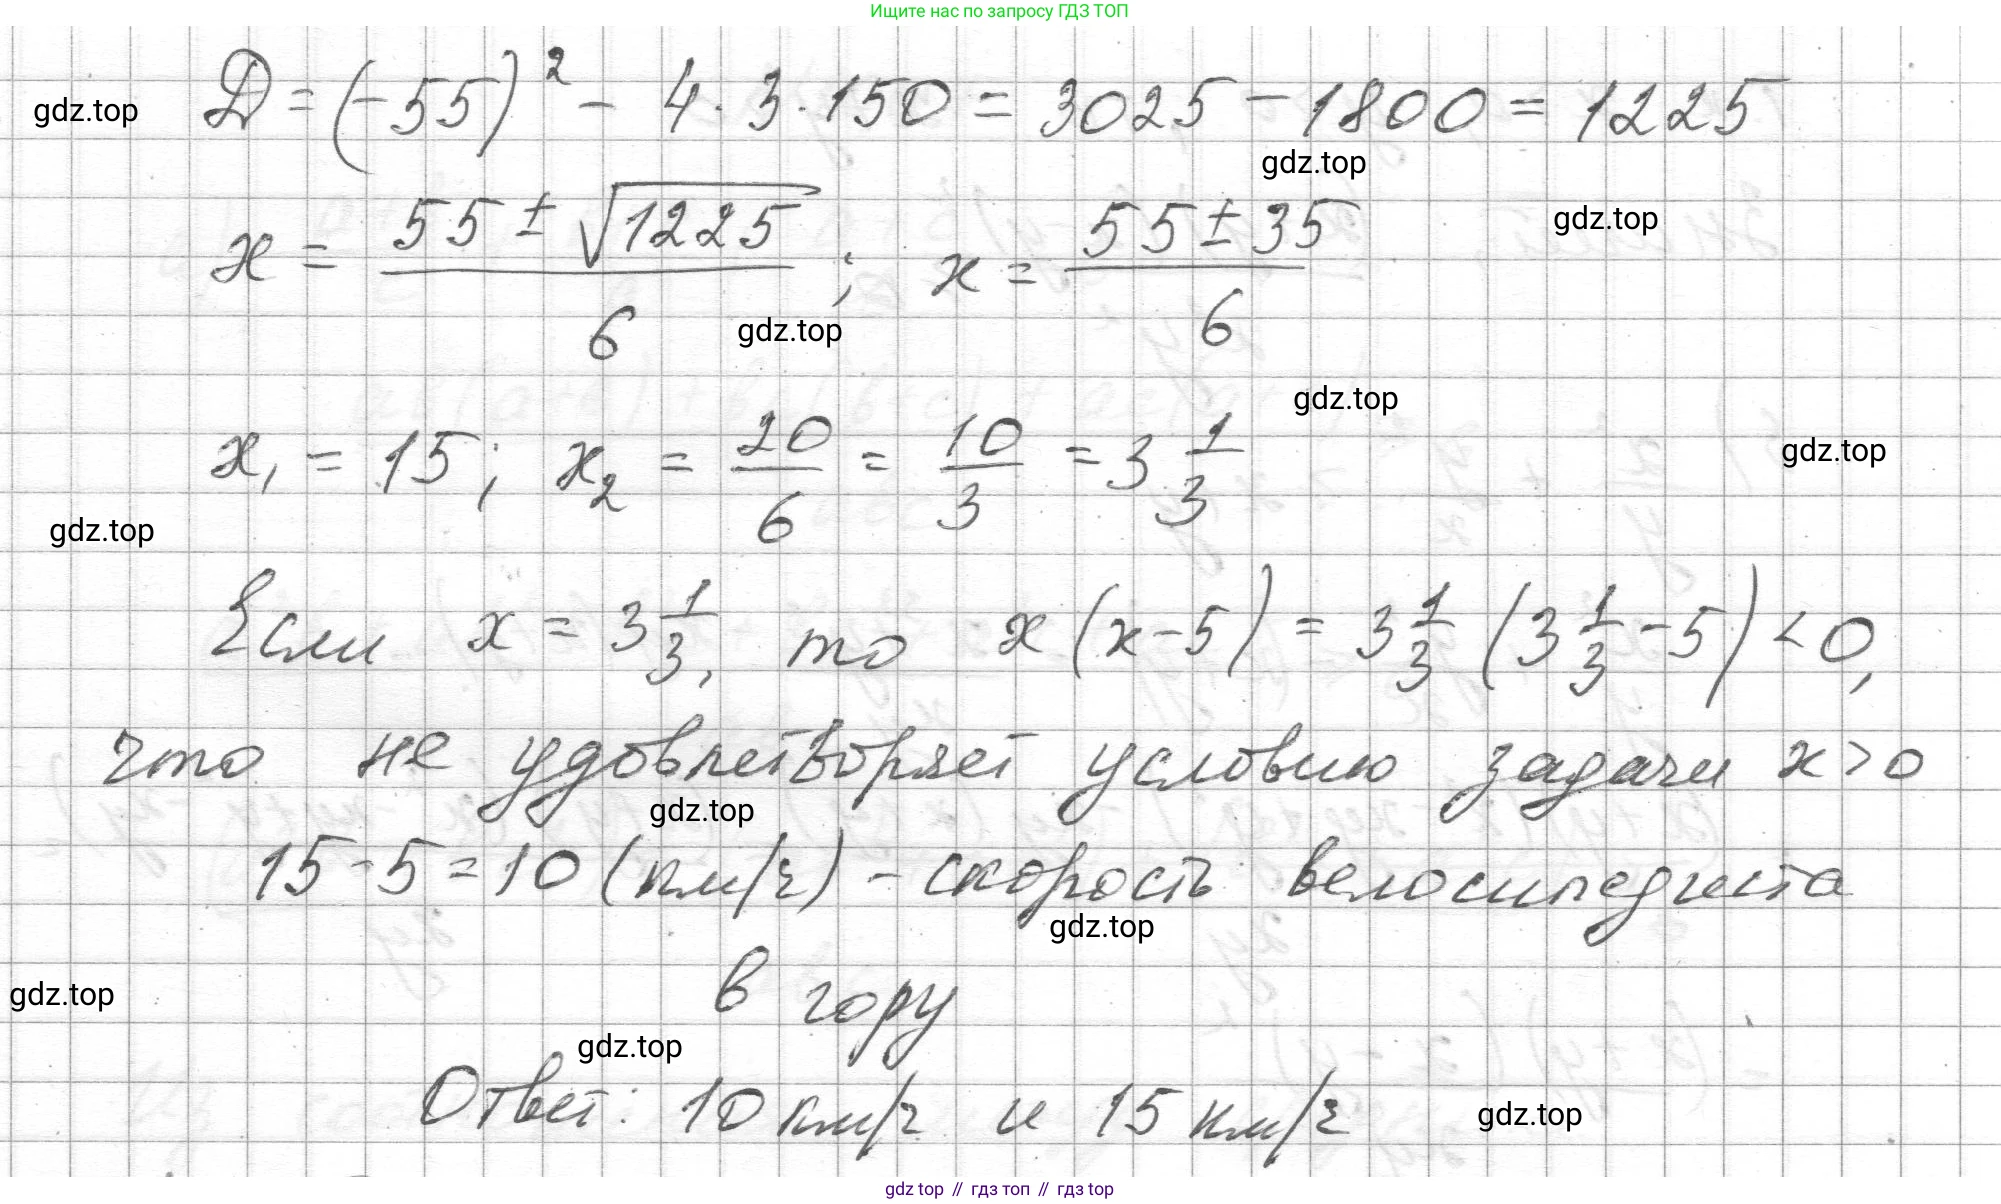 Ищите нас по запросу ГДЗ ТОП
gdz.top
Д = (-55)² - 4·3·150 = 3025 - 1800 = 1225
gdz.top
gdz.top
x = (55 ± √1225)/6 ; x = (55 ± 35)/6
gdz.top
gdz.top
x₁ = 15; x₂ = 20/6 = 10/3 = 3 1/3
gdz.top
gdz.top
Если x = 3 1/3, то x(x-5) = 3 1/3 (3 1/3 - 5) < 0,
что не удовлетворяет условию задачи x>0
gdz.top
15-5=10 (км/ч) - скорость велосипедиста
gdz.top
в гору
gdz.top
gdz.top
Ответ: 10 км/ч и 15 км/ч
gdz.top
gdz top // гдз топ // гдз top